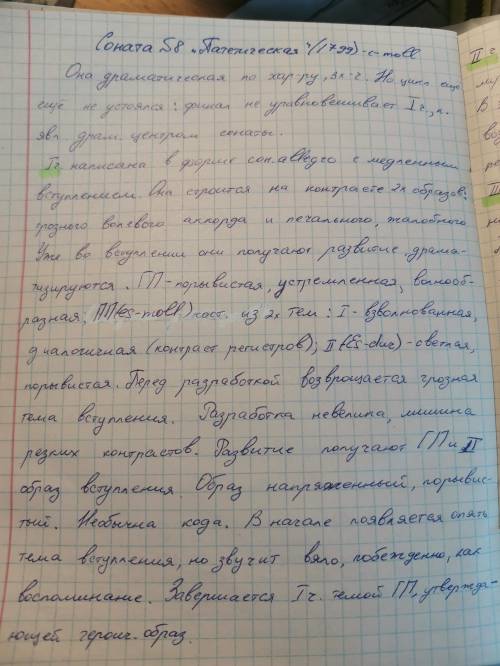 Соната №8 "Патетическая" (1799) - c-moll
Она драматическая по хар-ру, 3х-ч. Но цикл ещё
ещё не устоялся: финал не уравновешивает I ч.,
явл. драм. центром сонаты.
I ч. написана в форме сон. allegro с медленным
вступлением. Она строится на контрасте 2х образов:
грозного волевого аккорда и печального, жалобного
Уже во вступлении они получают развитие, драма-
тизируются. ГП - порывистая, устремленная, волнооб-
разная. ПП (es-moll) сост. из 2х тем: I - взволнованная,
диалогичная (контраст регистров); II (Es-dur) - светлая,
порывистая. Перед разработкой возвращается грозная
тема вступления. Разработка невелика, лишина
резких контрастов. Развитие получают ГП и II
образ вступления. Образ напряженный, порывис-
тый. Необычна кода. В начале появляется опять
тема вступления, но звучит вяло, побежденно, как
воспоминание. Завершается I ч. темой ГП, утвержда-
ющей героич. образ.
II ч
В
III